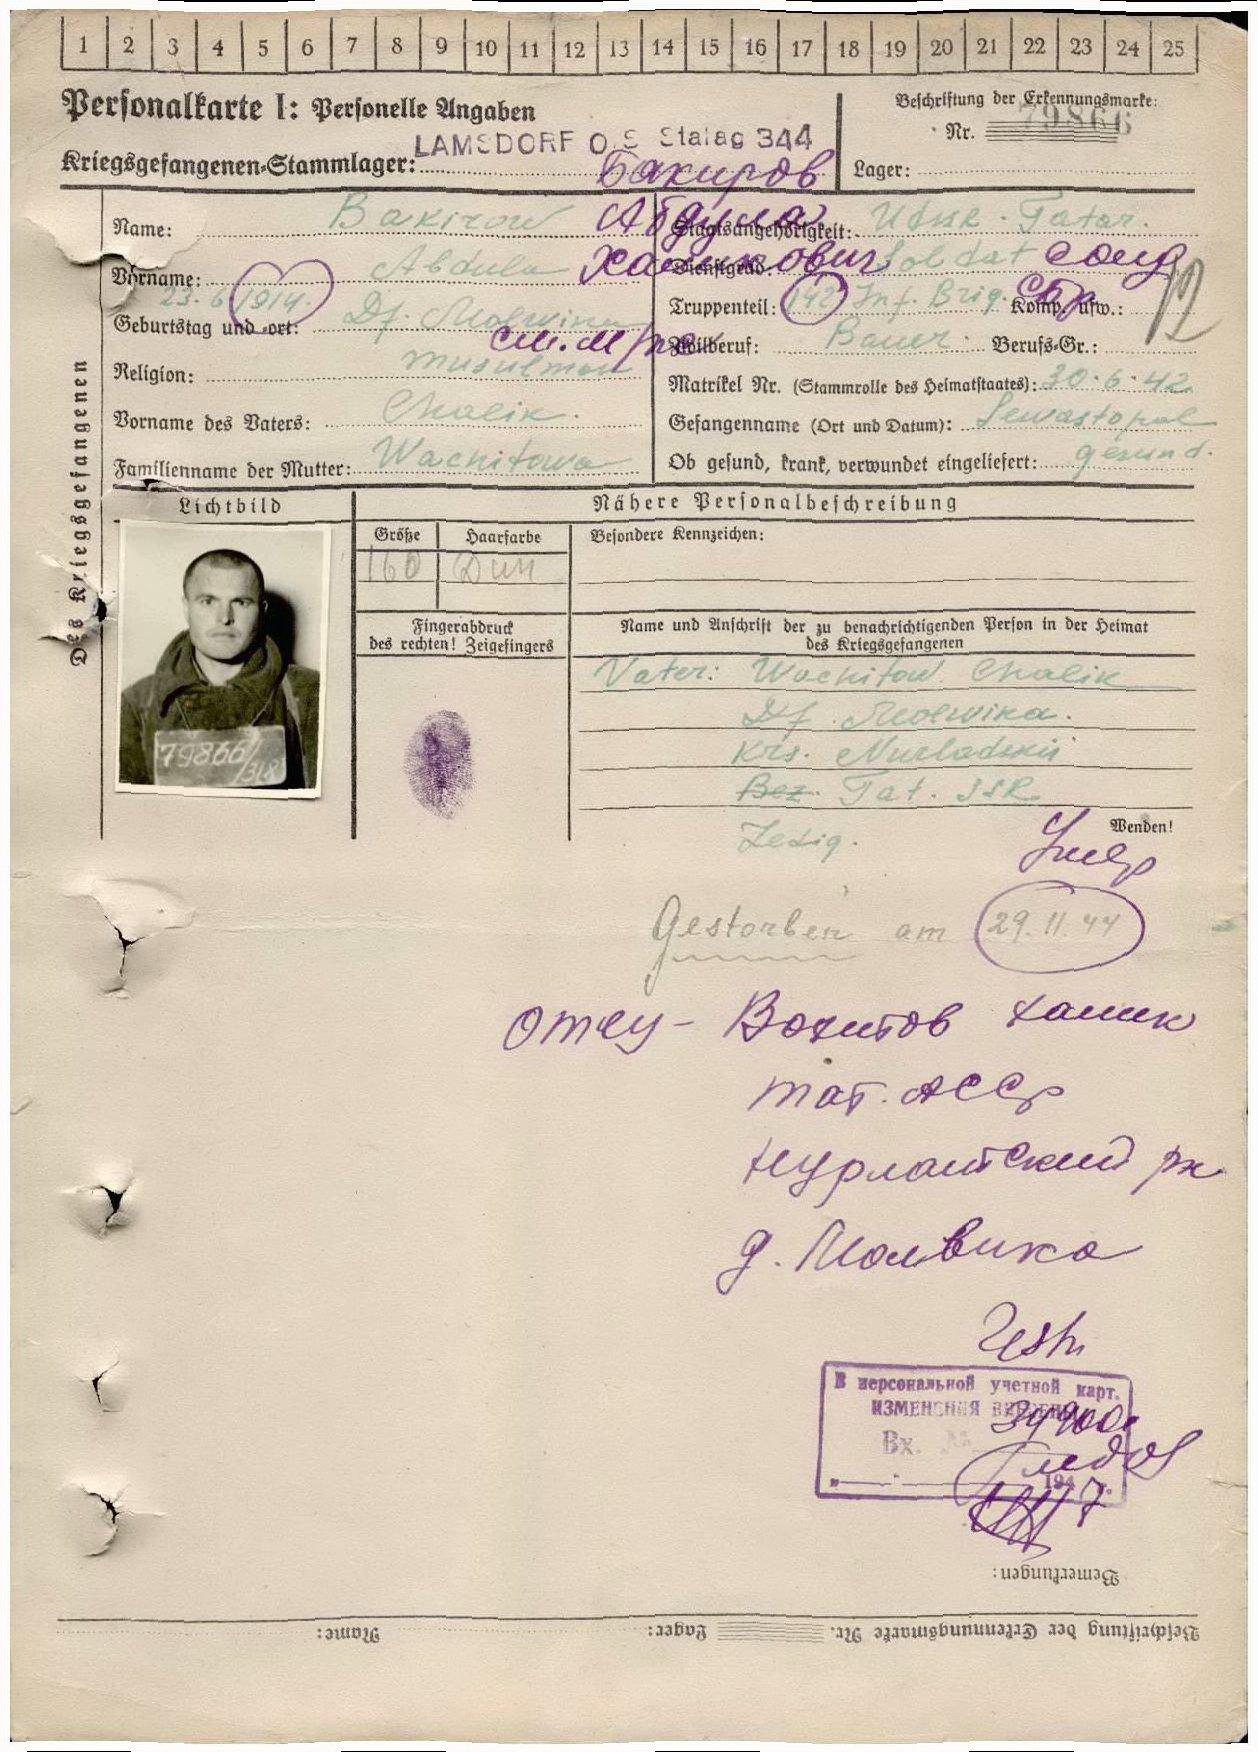 1 2 3 4 5 6 7 8 9 10 11 12 13 14 15 16 17 18 19 20 21 22 23 24 25
Personalkarte I: Personelle Angaben
Beschriftung der Erkennungsmarke:
Nr. 79866
LAMSDORF O.S Stalag 344
Kriegsgefangenen-Stammlager:
Lager:
Бакиров
Name: Bakirow
Абдула
Staatsangehörigkeit: Tatar.
Vorname: Abdula
Халикович
Dienstgrad: Soldat солд
23.6.1914.
Geburtstag und -ort: Df. Molwina
Truppenteil: 142 Inf. Brig. Komp. usw.:
сбр
12
см. м/пл
Zivilberuf: Bauer. Berufs-Gr.:
Religion: musulman
Matrikel Nr. (Stammrolle des Heimatstaates): 30.6.42.
Vorname des Vaters: Chalik.
Gefangenname (Ort und Datum): Sewastopol
Familienname der Mutter: Wachitowa
Ob gesund, krank, verwundet eingeliefert: gesund.
Des Kriegsgefangenen
Lichtbild
Nähere Personalbeschreibung
Größe
Haarfarbe
Besondere Kennzeichen:
160
79866/318
Fingerabdruck
des rechten! Zeigefingers
Name und Anschrift der zu benachrichtigenden Person in der Heimat
des Kriegsgefangenen
Vater: Wachitow Chalik
Df. Molwika.
Krs. Nurladskii
Bez. Tat. SSR
Ledig.
Wenden!
Умер
Gestorben am 29.11.44
отец - Вахитов Халик
тат. АССр
Нурлатский рн
д. Молвика
В персональной учетной карт.
ИЗМЕНЕНИЯ ВНЕСЕНЫ
Вх. №
194 7.
Bemerkungen:
Beschriftung der Erkennungsmarke Nr. Lager: Name: